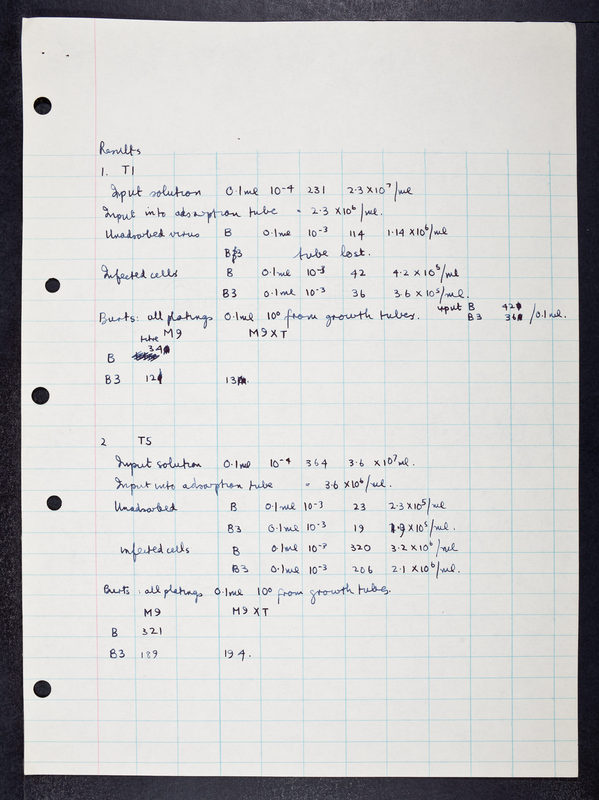 Results
1. T1
Input solution 0.1ml 10⁻⁴ 231 2.3 X10⁷/ml
Input into adsorption tube = 2.3 X10⁶/ml.
Unadsorbed virus B 0.1ml 10⁻³ 114 1.14 X10⁶/ml
B3 tube lost.
Infected cells B 0.1ml 10⁻³ 42 4.2 X 10⁵/ml
B3 0.1ml 10⁻³ 36 3.6 X 10⁵/ml.
Bursts: all platings 0.1ml 10⁰ from growth tubes. input B 42
B3 36 /0.1ml.
M9 M9XT
B 34
B3 12 13.
2 T5
Input solution 0.1ml 10⁻⁴ 364 3.6 X10⁷ml.
Input into adsorption tube = 3.6 X10⁶/ml.
Unadsorbed B 0.1ml 10⁻³ 23 2.3 X10⁵/ml
B3 0.1ml 10⁻³ 19 1.9 X10⁵/ml.
infected cells B 0.1ml 10⁻³ 320 3.2 X 10⁶/ml
B3 0.1ml 10⁻³ 206 2.1 X 10⁶/ml.
Bursts : all platings 0.1ml 10⁰ from growth tubes.
M9 M9 XT
B 321
B3 189 194.